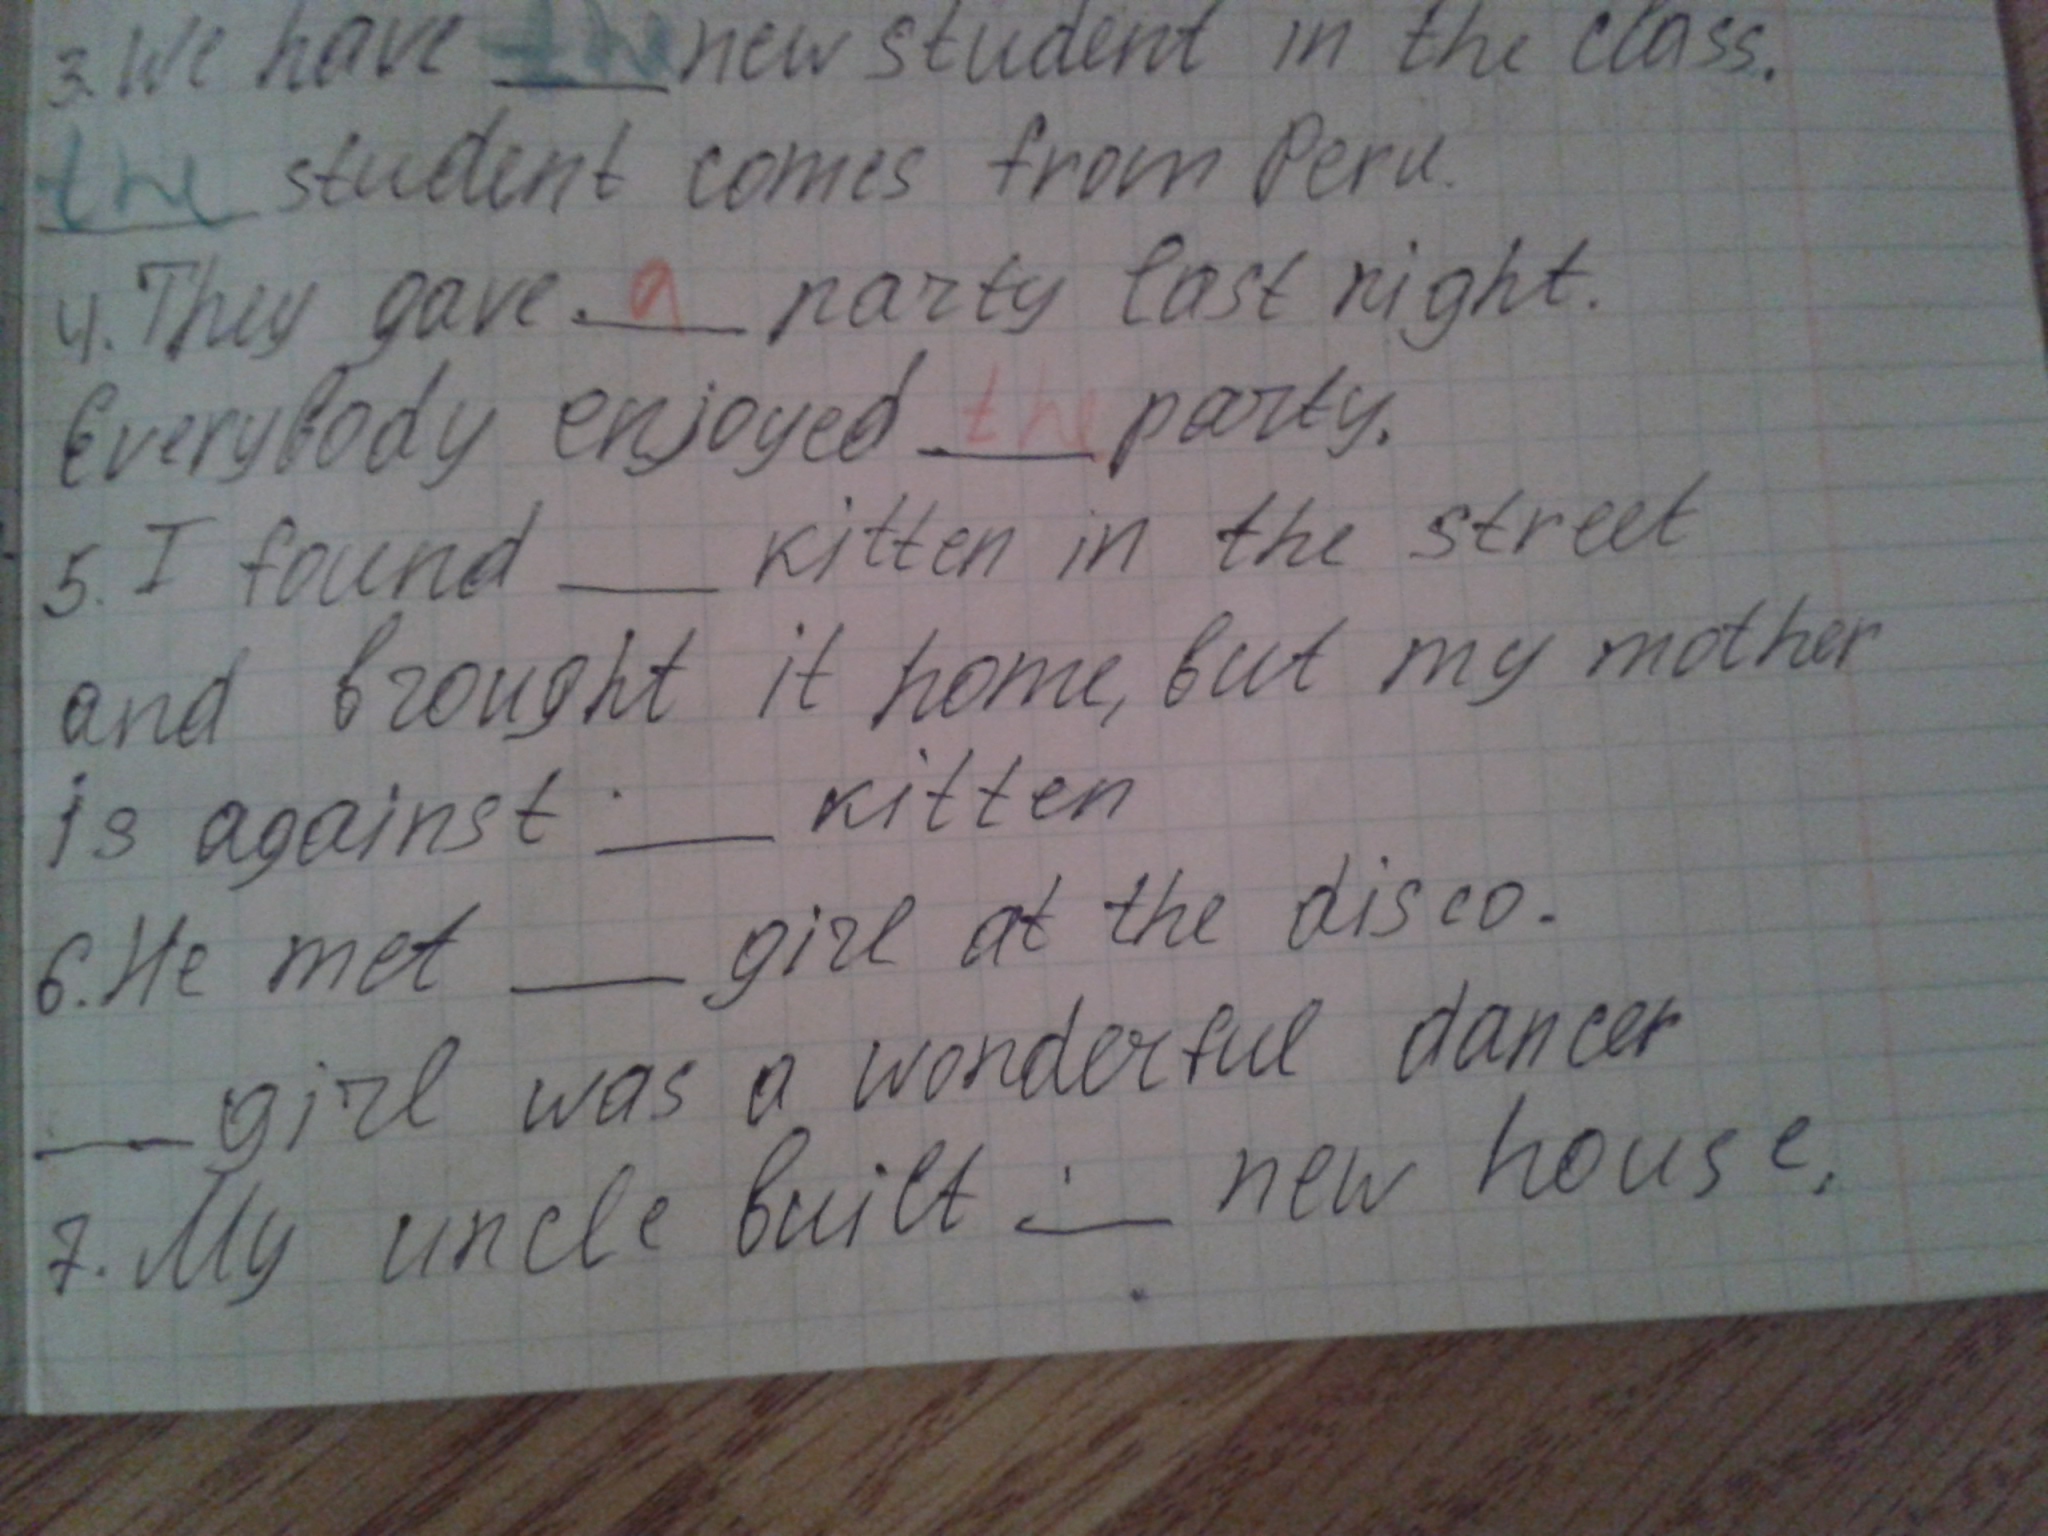 3. We have the new student in the class.
the student comes from Peru.
4. They gave a party last night.
Everybody enjoyed the party.
5. I found ___ kitten in the street
and brought it home, but my mother
is against ___ kitten
6. He met ___ girl at the disco.
___ girl was a wonderful dancer
7. My uncle built ___ new house.